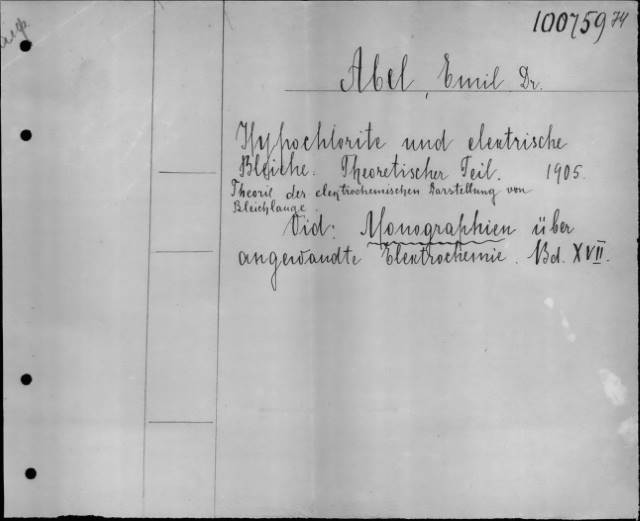 100759 74
Abel, Emil Dr.
Hypochlorite und elektrische
Bleiche. Theoretischer Teil. 1905.
Theorie der elektrochemischen Darstellung von
Bleichlauge.
Vid: Monographien über
angewandte Elektrochemie. Bd. XVII.